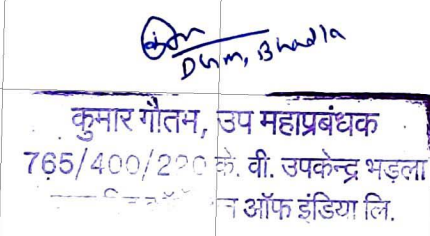 DGM, Bhadla
कुमार गौतम, उप महाप्रबंधक
765/400/220 के. वी. उपकेन्द्र भड़ला
ऑफ इंडिया लि.